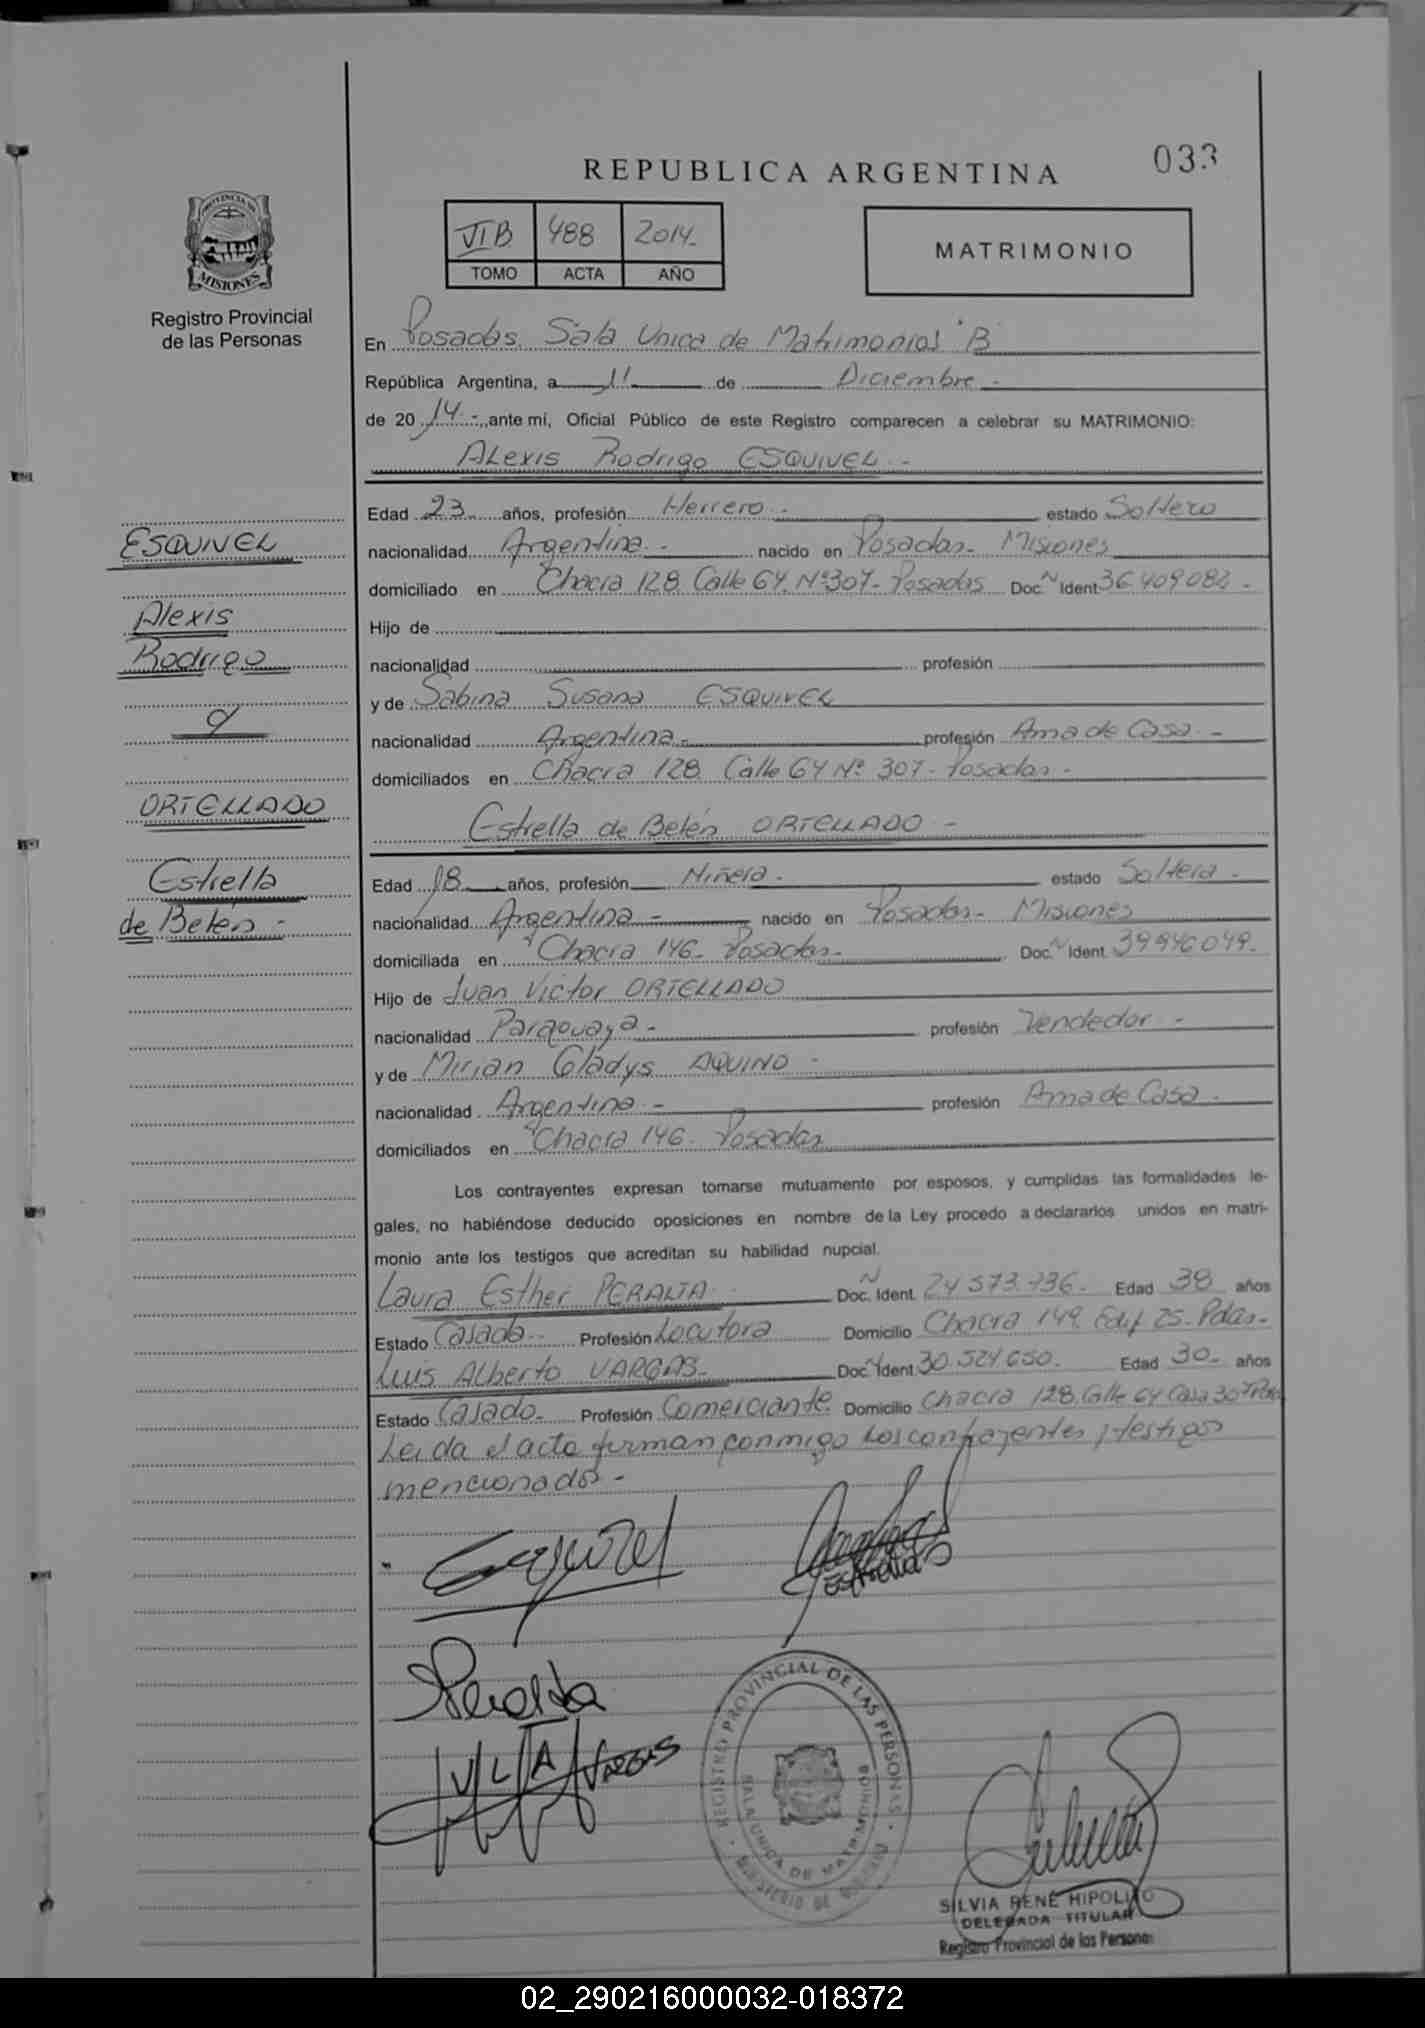 REPUBLICA ARGENTINA
033
PROVINCIA DE
MISIONES
Registro Provincial
de las Personas
VI B 488 2014.-
TOMO ACTA AÑO
MATRIMONIO
En Posadas, Sala Unica de Matrimonios "B"
República Argentina, a 11 de Diciembre.-
de 2014.-, ante mí, Oficial Público de este Registro comparecen a celebrar su MATRIMONIO:
Alexis Rodrigo ESQUIVEL.-
Edad 23 años, profesión Herrero.- estado Soltero
nacionalidad Argentina.- nacido en Posadas- Misiones
domiciliado en Chacra 128. Calle 64. Nº 307- Posadas Doc. N Ident 36.409.082.-
Hijo de
nacionalidad profesión
y de Sabina Susana ESQUIVEL
nacionalidad Argentina.- profesión Ama de Casa.-
domiciliados en Chacra 128. Calle 64 Nº 307- Posadas.-
Estrella de Belén ORTELLADO.-
Edad 18 años, profesión Niñera.- estado Soltera.-
nacionalidad Argentina.- nacido en Posadas- Misiones
domiciliada en Chacra 146- Posadas.- Doc. N Ident 39.946.049.-
Hijo de Juan Victor ORTELLADO
nacionalidad Paraguaya.- profesión Vendedor.-
y de Mirian Gladys AQUINO.-
nacionalidad Argentina.- profesión Ama de Casa.-
domiciliados en Chacra 146. Posadas
Los contrayentes expresan tomarse mutuamente por esposos, y cumplidas las formalidades le-
gales, no habiéndose deducido oposiciones en nombre de la Ley procedo a declararlos unidos en matri-
monio ante los testigos que acreditan su habilidad nupcial.
Laura Esther PERALTA.- Doc. N Ident. 24.573.736.- Edad 38 años
Estado Casada.- Profesión Locutora Domicilio Chacra 149. Edif 25- Pdas.-
Luis Alberto VARGAS.- Doc. N Ident 30.524.650. Edad 30.- años
Estado Casado.- Profesión Comerciante. Domicilio Chacra 128. Calle 64 Casa 307
Leida el acta firman conmigo los contrayentes y testigos
mencionados.-
ESQUIVEL
Alexis
Rodrigo
ORTELLADO
Estrella
de Belén.-
Esquivel
Estrella
Peralta
V L A Vargas
REGISTRO PROVINCIAL DE LAS PERSONAS
SALA UNICA DE MATRIMONIOS
MINISTERIO DE GOBIERNO
SILVIA RENÉ HIPOLITO
DELEGADA TITULAR
Registro Provincial de las Personas
02_290216000032-018372